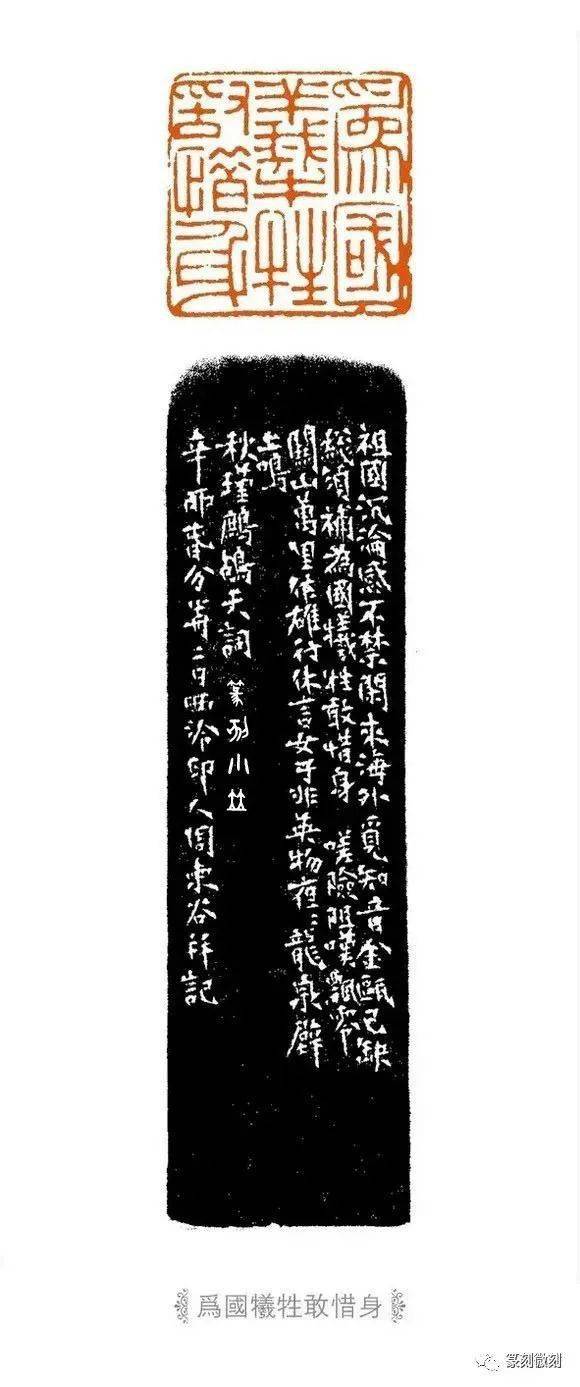 爲國
犧牲
敢惜身
祖國沉淪感不禁閑來海外覓知音金甌已缺
総須補為國犧牲敢惜身 嗟險阻嘆飄零
關山萬里作雄行休言女子非英物夜〻龍泉壁
上鳴
秋瑾鷓鴣天詞 篆刻小
辛卯春分前二日西泠印人周東谷記
爲國犧牲敢惜身
篆刻微刻